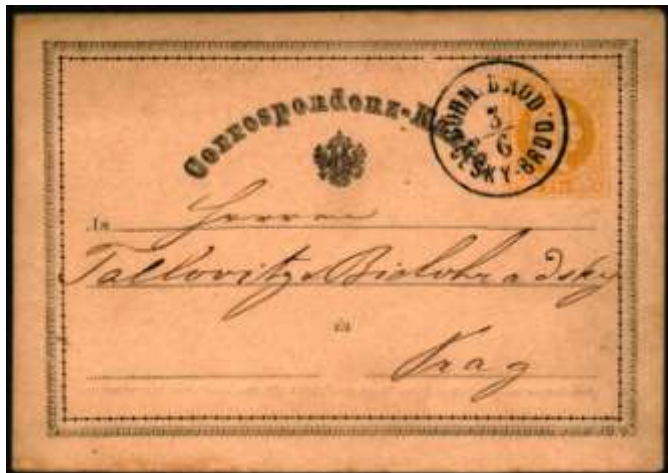 Correspondenz-K
BÖHM. BROD.
3
6
ČESKY-BROD
An
Herrn
Talkovitz & Bielohradsky
in
Prag